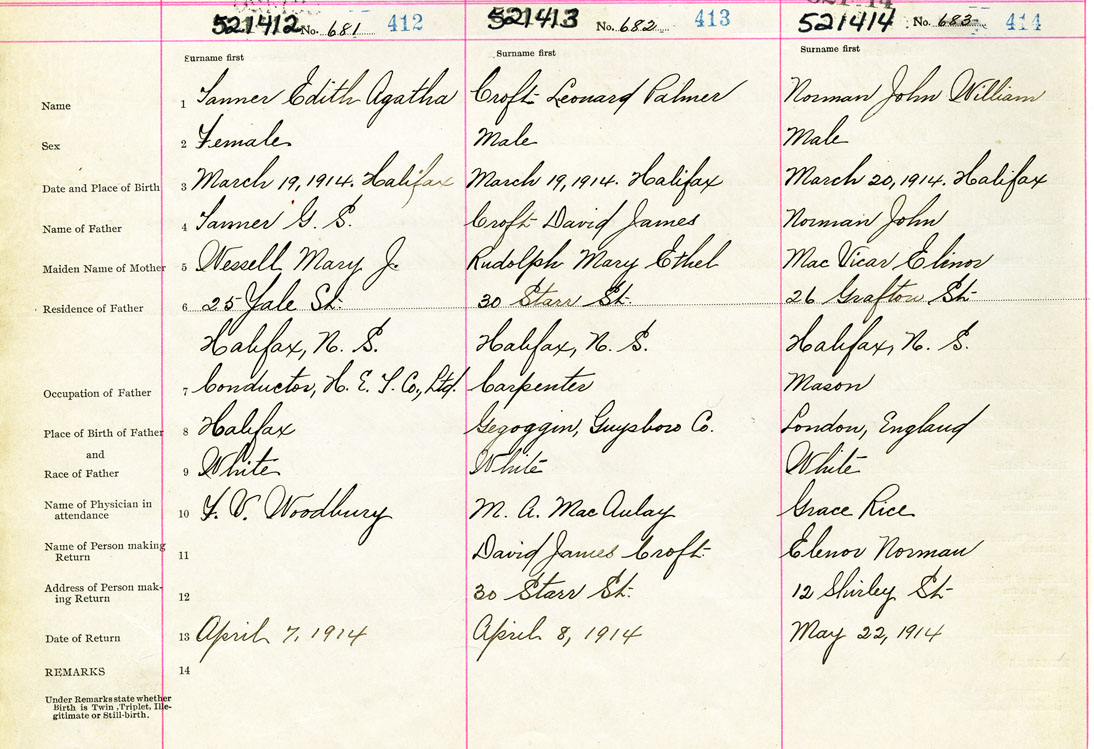 521412 No. 681 412 521413 No. 682 413 521414 No. 683 414
Surname first Surname first Surname first
Name 1 Tanner Edith Agatha Croft Leonard Palmer Norman John William
Sex 2 Female Male Male
Date and Place of Birth 3 March 19, 1914. Halifax March 19, 1914. Halifax March 20, 1914. Halifax
Name of Father 4 Tanner G. S. Croft David James Norman John
Maiden Name of Mother 5 Wessell Mary J. Rudolph Mary Ethel Mac Vicar Elinor
Residence of Father 6 25 Yale St. 30 Starr St. 26 Grafton St.
Halifax, N. S. Halifax, N. S. Halifax, N. S.
Occupation of Father 7 Conductor, H. E. T. Co., Ltd. Carpenter Mason
Place of Birth of Father 8 Halifax Gegoggin, Guysboro Co. London, England
and
Race of Father 9 White White White
Name of Physician in
attendance 10 F. V. Woodbury M. A. MacAulay Grace Rice
Name of Person making
Return 11 David James Croft Elenor Norman
Address of Person mak-
ing Return 12 30 Starr St. 12 Shirley St.
Date of Return 13 April 7, 1914 April 8, 1914 May 22, 1914
REMARKS 14
Under Remarks state whether
Birth is Twin, Triplet, Ille-
gitimate or Still-birth.